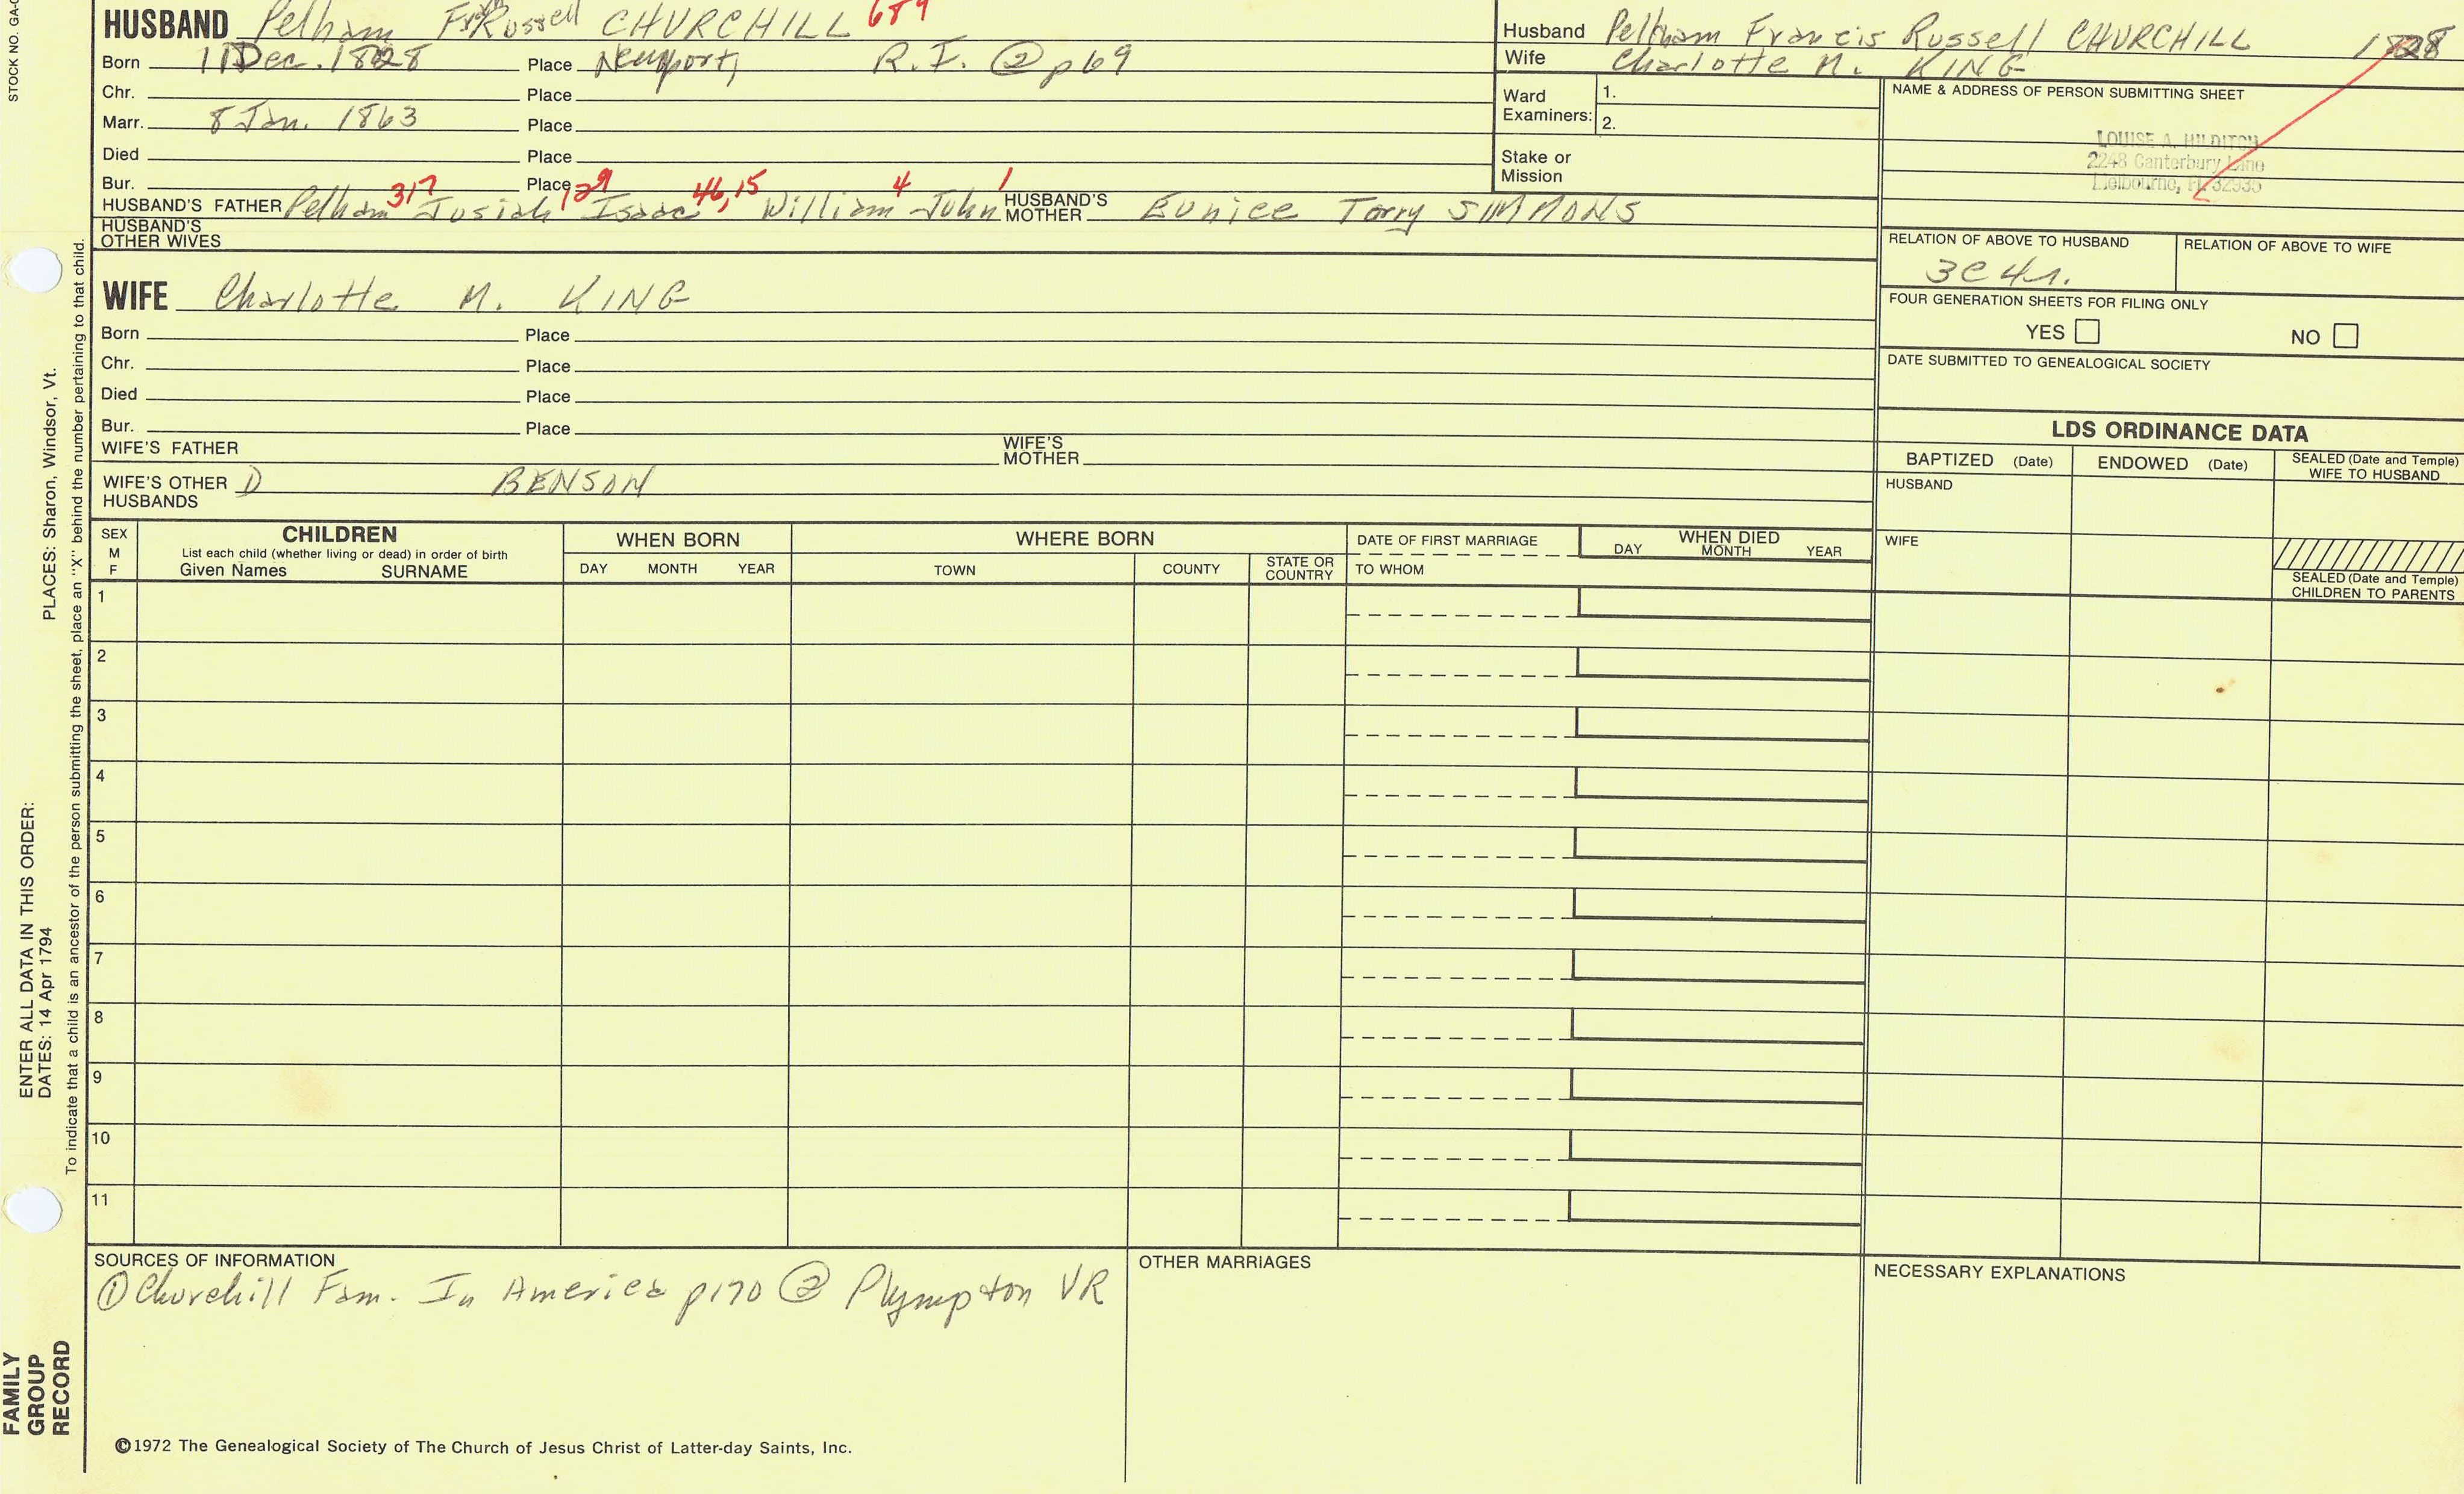 STOCK NO. GA-
HUSBAND Pelham Russell CHURCHILL 689
Born 11 Dec. 1828 Place Newport, R.I. @ p69
Chr. Place
Marr. 8 Jan. 1863 Place
Died Place
Bur. Place
317 129 46,15 4 1
HUSBAND'S FATHER Pelham Josiah Isaac William John HUSBAND'S MOTHER Eunice Torry SIMMONS
HUSBAND'S OTHER WIVES
WIFE Charlotte M. KING
Born Place
Chr. Place
Died Place
Bur. Place
WIFE'S FATHER WIFE'S MOTHER
WIFE'S OTHER HUSBANDS D BENSON
Husband Pelham Francis Russell CHURCHILL 1828
Wife Charlotte M. KING
Ward Examiners: 1.
2.
Stake or Mission
NAME & ADDRESS OF PERSON SUBMITTING SHEET
LOUISE A. HILDITCH
2248 Canterbury Lane
Melbourne, FL 32935
RELATION OF ABOVE TO HUSBAND RELATION OF ABOVE TO WIFE
3C4r.
FOUR GENERATION SHEETS FOR FILING ONLY
YES NO
DATE SUBMITTED TO GENEALOGICAL SOCIETY
LDS ORDINANCE DATA
BAPTIZED (Date) ENDOWED (Date) SEALED (Date and Temple) WIFE TO HUSBAND
HUSBAND
WIFE
SEALED (Date and Temple) CHILDREN TO PARENTS
SEX M F
CHILDREN
List each child (whether living or dead) in order of birth
Given Names SURNAME
WHEN BORN
DAY MONTH YEAR
WHERE BORN
TOWN COUNTY STATE OR COUNTRY
DATE OF FIRST MARRIAGE
TO WHOM
WHEN DIED
DAY MONTH YEAR
1
2
3
4
5
6
7
8
9
10
11
SOURCES OF INFORMATION
① Churchill Fam. In America p170 ② Plympton VR
OTHER MARRIAGES
NECESSARY EXPLANATIONS
©1972 The Genealogical Society of The Church of Jesus Christ of Latter-day Saints, Inc.
ENTER ALL DATA IN THIS ORDER:
DATES: 14 Apr 1794 PLACES: Sharon, Windsor, Vt.
To indicate that a child is an ancestor of the person submitting the sheet, place an "X" behind the number pertaining to that child.
FAMILY
GROUP
RECORD